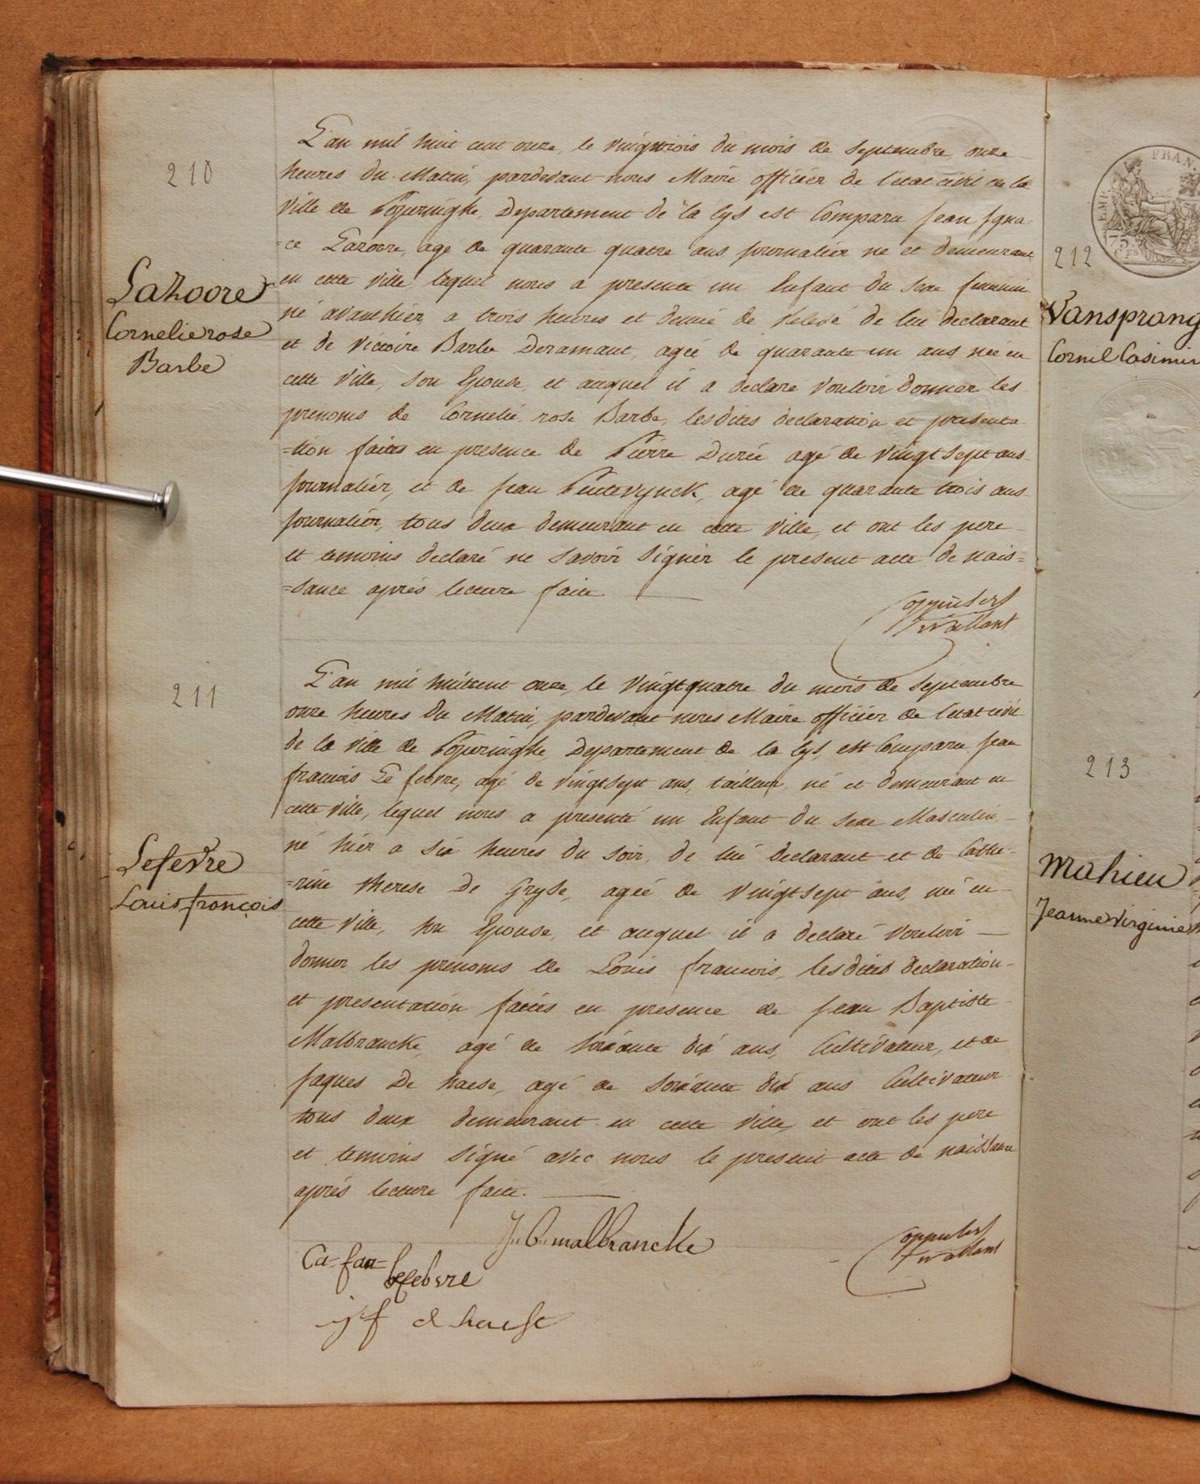 210
L'an mil huit cent onze, le vingttrois du mois de septembre, onze
heures du Matin, pardevant nous Maire officier de l'etat civil de la
Ville de Poperinghe, Departement de la Lys est Comparu Jean Igna-
=ce Lazoore, agé de quarante quatre ans journalier né et demeurant
en cette Ville lequel nous a presenté un Enfant du sexe feminin
né avanthier a trois heures et demie de relevé de lui declarant
et de Victoire Barbe Deramaut, agée de quarante un ans née en
cette Ville, son Epouse, et auquel il a declaré Vouloir donner les
prenoms de Cornelie rose Barbe, lesdites declaration et presenta-
=tion faites en presence de Pierre Durée agé de Vingtsept ans
journalier, et de Jean Puttevynck, agé de quarante trois ans
journalier, tous deux demeurant en cette Ville, et ont les pere
et temoins declaré ne savoir signer le present acte de nais=
=sance après lecture faite
Lazoore
Cornelie rose
Barbe
211
L'an mil huitcent onze, le Vingtquatre du mois de Septembre
onze heures du Matin, pardevant nous Maire officier de l'etat civil
de la Ville de Poperinghe, Departement de la Lys, est Comparu Jean
francois Le febvre, agé de Vingtsept ans, tailleur, né et demeurant en
cette Ville, lequel nous a presenté un Enfant du sexe Masculin,
né hier a six heures du soir, de lui declarant et de Cathe-
=rine therese de Gryse, agée de Vingtsept ans, né en
cette Ville, son Epouse, et auquel il a declaré Vouloir
donner les prenoms de Louis francois, lesdites declaration
et presentation faites en presence de Jean Baptiste
Malbrancke, agé de soixante dix ans, Cultivateur, et de
Jaques De haese, agé de soixante dix ans Cultivateur
tous deux demeurant en cette Ville, et ont les pere
et temoins signé avec nous le present acte de naissance
après lecture faite.
Lefevre
Louis françois
J. B. malbrancke
lefebvre
212
Vansprang
Cornil Casimir
213
Mahieu
Jeanne Virginie